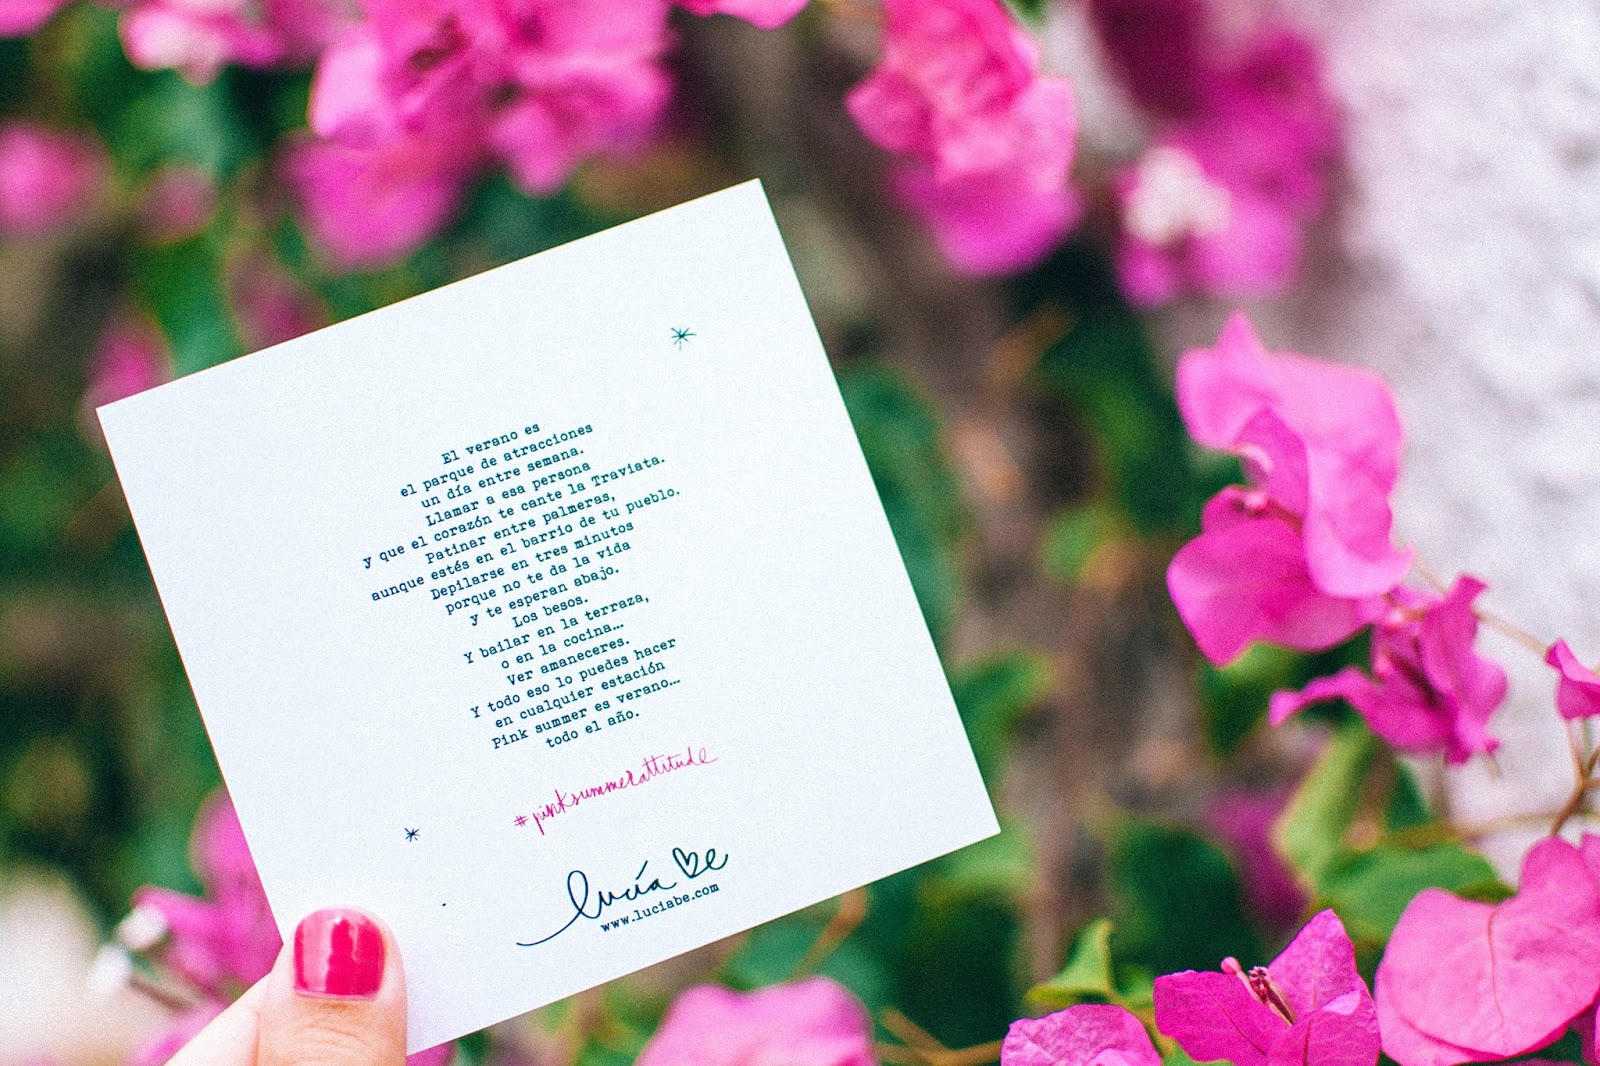 El verano es
el parque de atracciones
un día entre semana.
Llamar a esa persona
y que el corazón te cante la Traviata.
Patinar entre palmeras,
aunque estés en el barrio de tu pueblo.
Depilarse en tres minutos
porque no te da la vida
y te esperan abajo.
Los besos.
Y bailar en la terraza,
o en la cocina…
Ver amaneceres.
Y todo eso lo puedes hacer
en cualquier estación
Pink summer es verano…
todo el año.
#pinksummerattitude
lucía be
www.luciabe.com